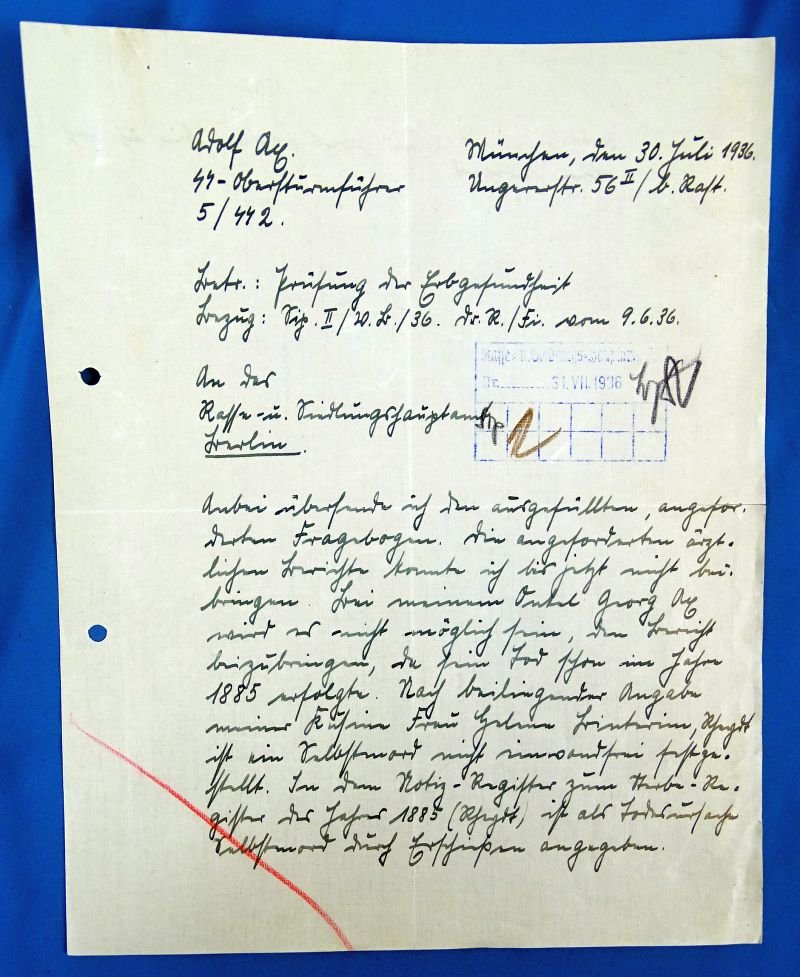 Adolf Ax.
SS-Obersturmführer
5/SS 2.
München, den 30. Juli 1936.
Ungererstr. 56 II/ b. Rast.
Betr.: Prüfung der Erbgesundheit
Bezug: Sip. II/W.L./36. Dr. R./Fi. vom 9.6.36.
An das
Rasse- u. Siedlungshauptamt
Berlin.
Rasse- u. Siedlungs-Hauptamt
Nr. 31. VII. 1936
Sip
Anbei übersende ich den ausgefüllten, angefor-
derten Fragebogen. Die angeforderten ärzt-
lichen Berichte konnte ich bis jetzt nicht bei-
bringen. Bei meinem Onkel Georg Ax
wird es nicht möglich sein, den Bericht
beizubringen, da sein Tod schon im Jahre
1885 erfolgte. Nach beiliegender Angabe
meiner Kusine Frau Helene Binterim, Rheydt
ist ein Selbstmord nicht einwandfrei festge-
stellt. In dem Notiz-Register zum Sterbe-Re-
gister des Jahres 1885 (Rheydt) ist als Todesursache
Selbstmord durch Erschießen angegeben.